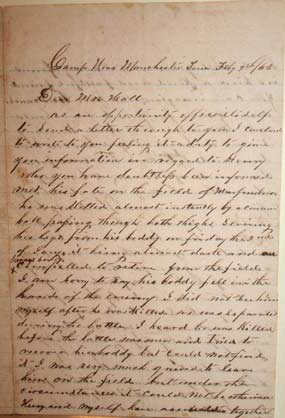 Camp Near Manchester Tenn Feby 9th/63
Dear Mrs Hall
as an opportunity offers itself
to send a letter through to you I conclude
to write to you feeling it a duty to give
you information in regard to Henry
who you have doubtless been informed
met his fate on the field of Murfreesboro
he was killed almost instantly by a cannon
ball passing though both thighs severing
his legs from his boddy on friday the 2nd
of being almost dark and
compelled to retire from the field
I am sorry to say his boddy fell in the
hands of the enemy I did not see him
myself after he was killed we was separated
during the battle I heard he was killed
before the battle was over and tried to
recover his boddy but could not find
it I was very much grieved to leave
him on the field but under the
circumstances it could not be otherwise
Henry and Myself have together